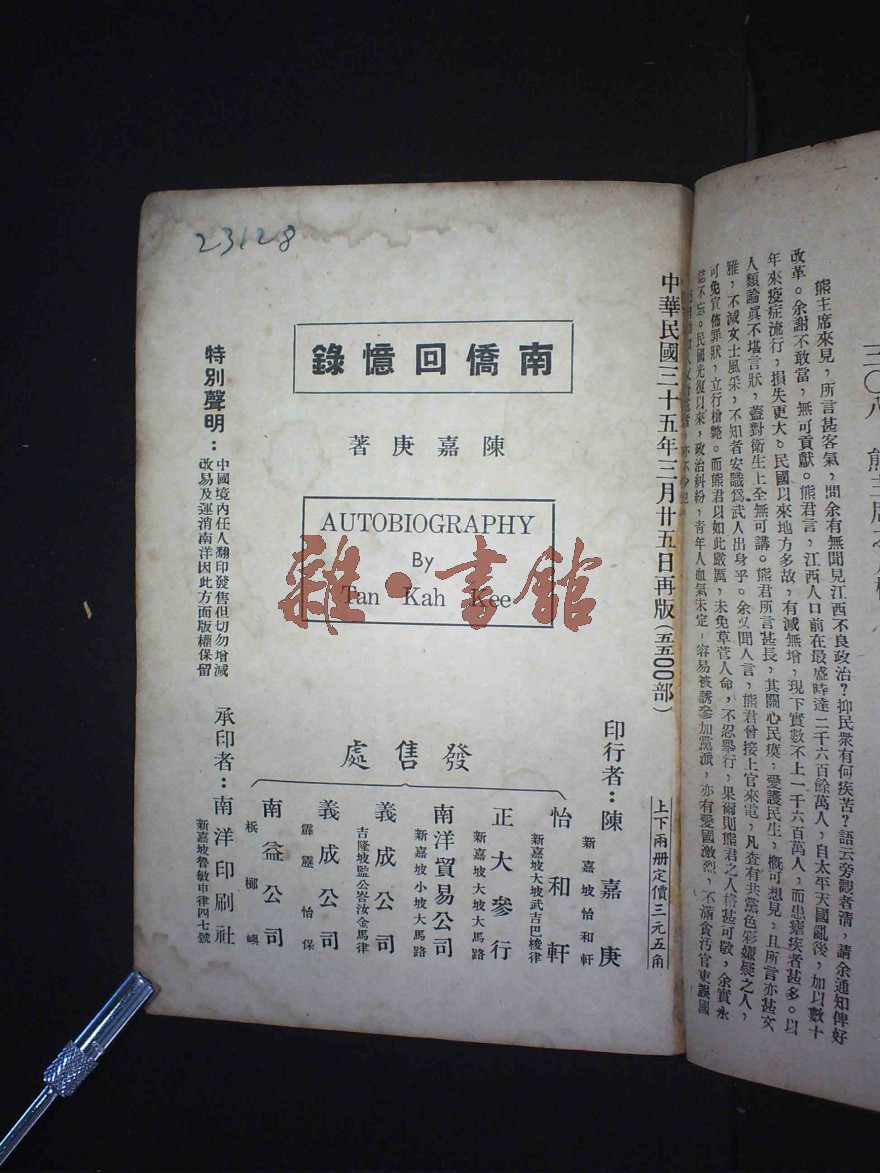 23128
中華民國三十五年三月廿五日再版(五五〇〇部)
上下兩册定價三元五角
南僑回憶錄
陳嘉庚著
AUTOBIOGRAPHY
By
Tan Kah Kee
雜·書館
印行者:陳嘉庚
新嘉坡怡和軒
發售處
怡和軒
新嘉坡大坡武吉巴梭律
正大參行
新嘉坡大坡大馬路
南洋貿易公司
新嘉坡小坡大馬路
義成公司
吉隆坡監公峇汝金馬律
義成公司
霹靂怡保
南益公司
梹榔嶼
特別聲明:
中國境內任人翻印發售但切勿增減
改易及運消南洋因此方面版權保留
承印者:南洋印刷社
新嘉坡魯敏申律四七號
熊主席來見,所言甚客氣,問余有無聞見江西不良政治?抑民衆有何疾苦?語云旁觀者清,請余通知俾好
改革。余謝不敢當,無可貢獻。熊君言,江西人口前在最盛時達二千六百餘萬人,自太平天國亂後,加以數十
年來疫症流行,損失更大。民國以來地方多故,有減無增,現下實數不上一千六百萬人,而患瘧疾者甚多。以
人類論眞不堪言狀,蓋對衛生上全無可講。熊君所言甚長,其關心民瘼,愛護民生,概可想見,且所言亦甚文
雅,不減女士風采,不知者安識爲武人出身乎。余又聞人言,熊君曾接上官來電,凡查有共黨色彩嫌疑之人,
可免宣佈罪狀,立行槍斃。而熊君以如此嚴厲,未免草菅人命,不忍舉行,果爾則熊君之人格甚可敬,余實永
誌不忘。民國光復以來,政治糾紛,青年人血氣未定,容易被誘參加黨派,亦有愛國激烈,不滿貪污官吏誤國